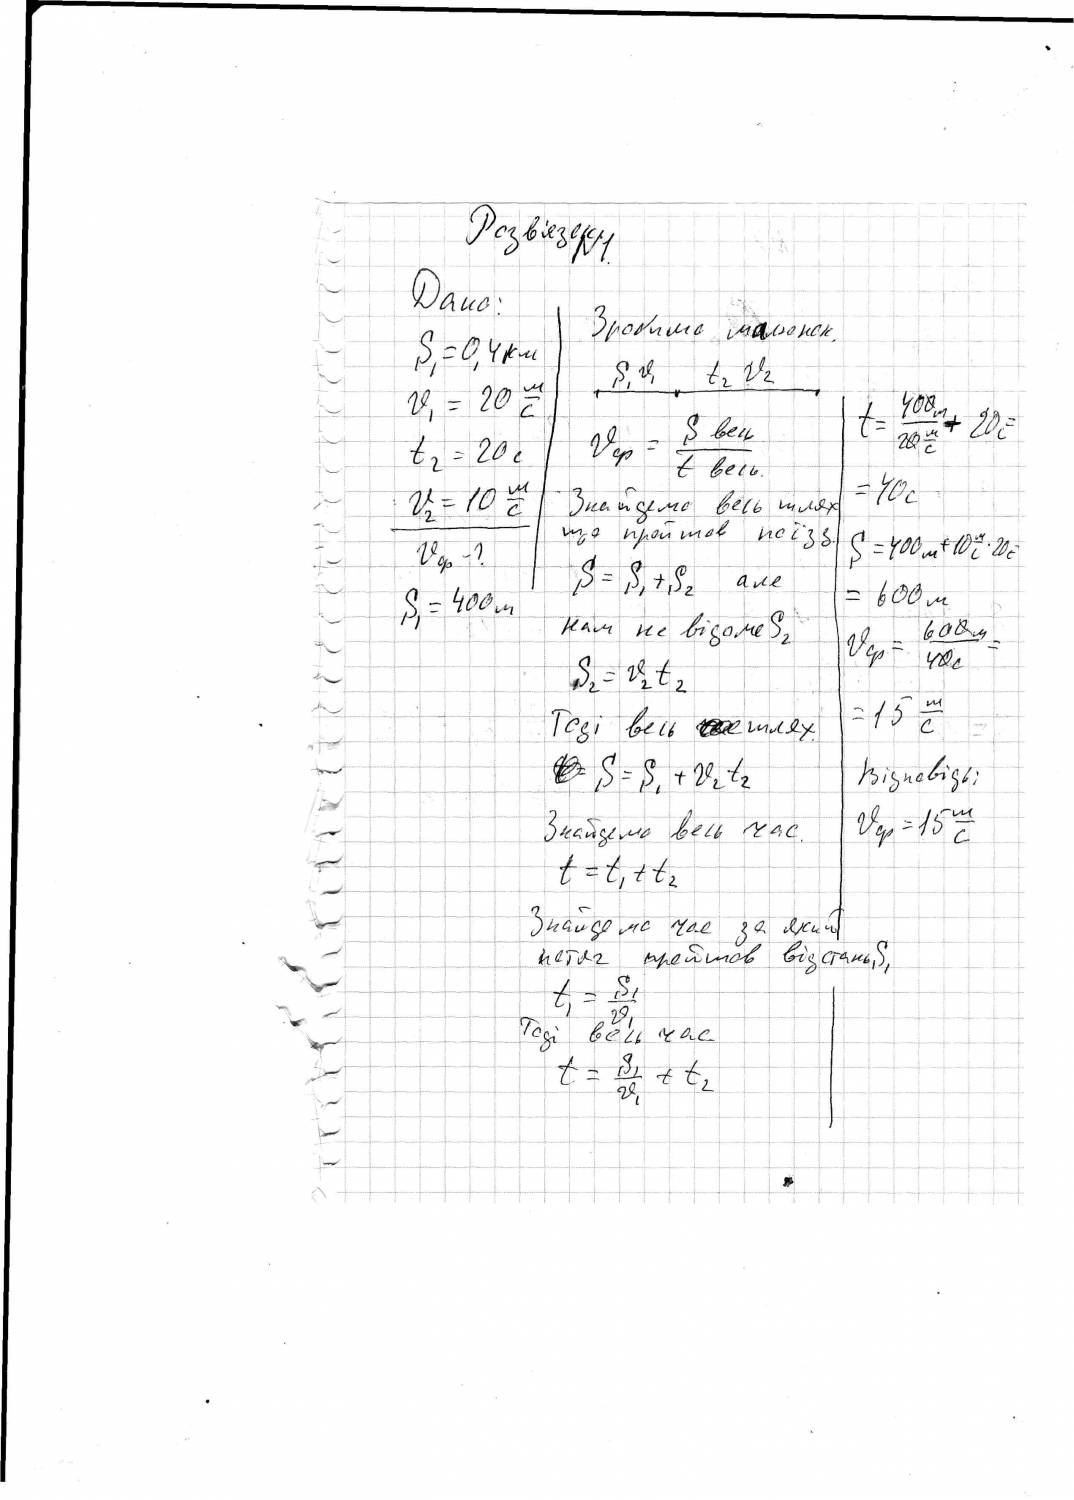 Розв'язок №1.
Дано:
S₁ = 0,4 км
v₁ = 20 м/с
t₂ = 20 с
v₂ = 10 м/с
vср - ?
S₁ = 400 м
Зробимо малюнок.
S₁ v₁ t₂ v₂
vср = S весь / t весь.
Знайдемо весь шлях
що пройшов поїзд.
S = S₁ + S₂ але
нам не відоме S₂
S₂ = v₂ t₂
Тоді весь шлях.
S = S₁ + v₂ t₂
Знайдемо весь час.
t = t₁ + t₂
Знайдемо час за який
потяг пройшов відстань S₁
t₁ = S₁/v₁
Тоді весь час
t = S₁/v₁ + t₂
t = 400м / 20 м/с + 20с =
= 40с
S = 400м + 10 м/с · 20с =
= 600м
vср = 600м / 40с =
= 15 м/с
Відповідь:
vср = 15 м/с